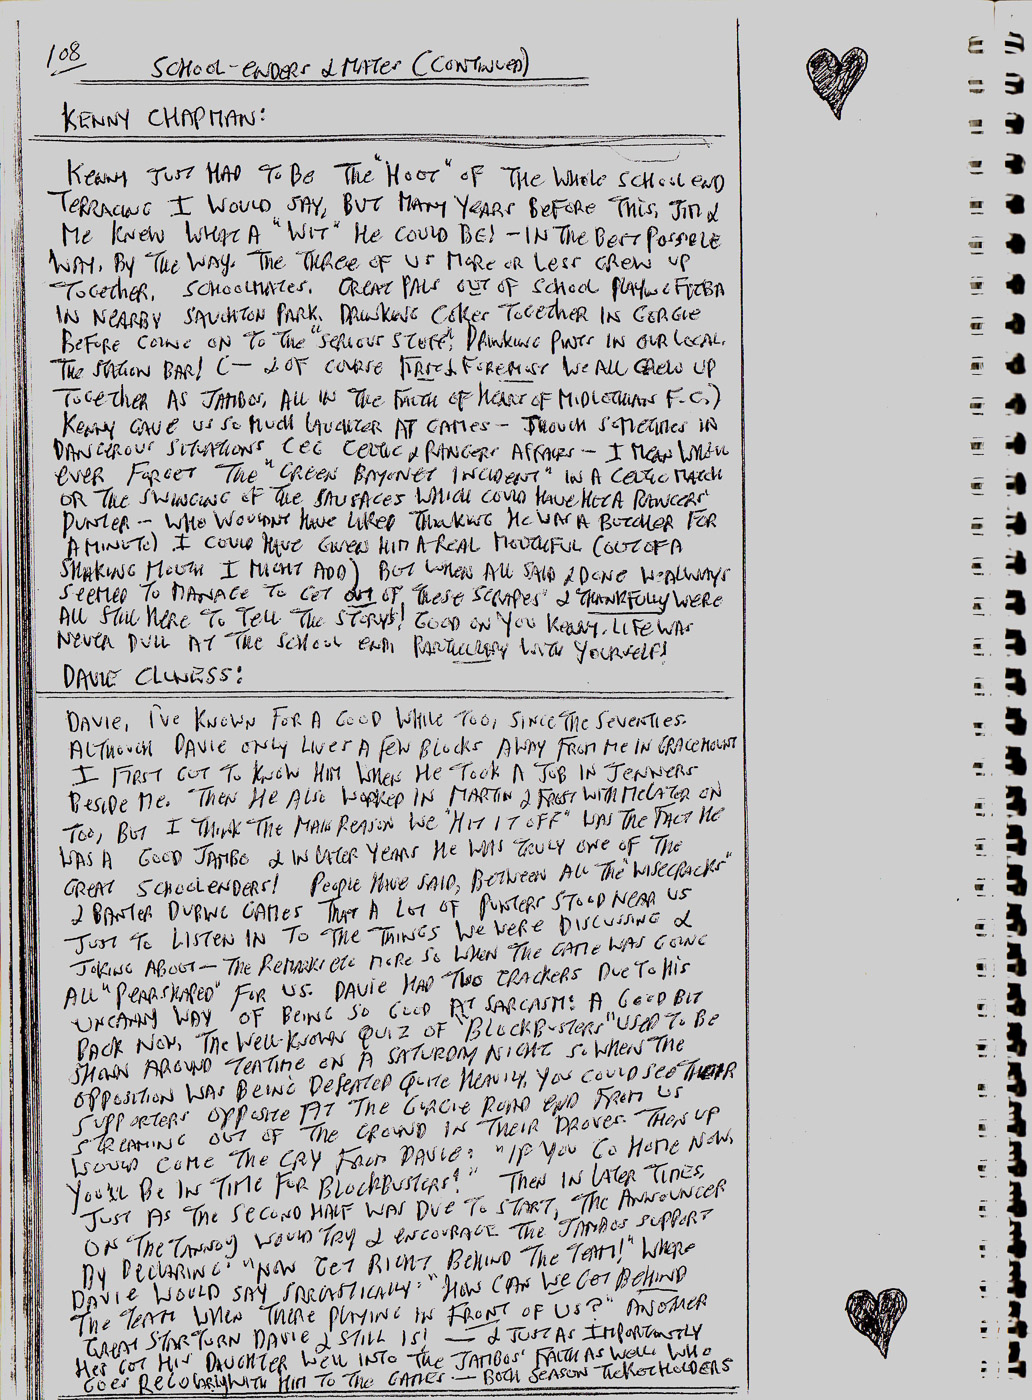 108
SCHOOL-ENDERS & MATES (CONTINUED)
KENNY CHAPMAN:
KENNY JUST HAD TO BE THE "HOOT" OF THE WHOLE SCHOOL END
TERRACING I WOULD SAY, BUT MANY YEARS BEFORE THIS, JIM &
ME KNEW WHAT A "WIT" HE COULD BE! - IN THE BEST POSSIBLE
WAY. BY THE WAY. THE THREE OF US MORE OR LESS GREW UP
TOGETHER, SCHOOLMATES. GREAT PALS OUT OF SCHOOL PLAYING FITBA
IN NEARBY SAUGHTON PARK. DRINKING COKES TOGETHER IN GORGIE
BEFORE GOING ON TO THE "SERIOUS STUFF". DRINKING PINTS IN OUR LOCAL.
THE STATION BAR! (- & OF COURSE FIRST & FOREMOST WE ALL GREW UP
TOGETHER AS JAMBOS, ALL IN THE FAITH OF HEART OF MIDLOTHIAN F.C.)
KENNY GAVE US SO MUCH LAUGHTER AT GAMES - THOUGH SOMETIMES IN
DANGEROUS SITUATIONS (EG CELTIC & RANGERS AFFAIRS - I MEAN WHO'LL
EVER FORGET THE "GREEN BAYONET INCIDENT" IN A CELTIC MATCH
OR THE SWINGING OF THE SAUSAGES WHICH COULD HAVE HIT A RANGERS
PUNTER - WHO WOULDN'T HAVE LIKED THINKING HE WAS A BUTCHER FOR
A MINUTE) I COULD HAVE GIVEN HIM A REAL MOUTHFUL (OUT OF A
SHAKING MOUTH I MIGHT ADD) BUT WHEN ALL SAID & DONE WE ALWAYS
SEEMED TO MANAGE TO GET OUT OF THESE "SCRAPES" & THANKFULLY WERE
ALL STILL HERE TO TELL THE STORYS! GOOD ON YOU KENNY. LIFE WAS
NEVER DULL AT THE SCHOOL END PARTICULARY WITH YOURSELF!
DAVIE CLUNESS:
DAVIE, I'VE KNOWN FOR A GOOD WHILE TOO, SINCE THE SEVENTIES.
ALTHOUGH DAVIE ONLY LIVES A FEW BLOCKS AWAY FROM ME IN GRACEMOUNT
I FIRST GOT TO KNOW HIM WHEN HE TOOK A JOB IN JENNERS
BESIDE ME. THEN HE ALSO WORKED IN MARTIN & FROST WITH ME LATER ON
TOO, BUT I THINK THE MAIN REASON WE "HIT IT OFF" WAS THE FACT HE
WAS A GOOD JAMBO & IN LATER YEARS HE WAS TRULY ONE OF THE
GREAT SCHOOLENDERS! PEOPLE HAVE SAID, BETWEEN ALL THE "WISECRACKS"
& BANTER DURING GAMES THAT A LOT OF PUNTERS STOOD NEAR US
JUST TO LISTEN IN TO THE THINGS WE WERE DISCUSSING &
JOKING ABOUT - THE REMARKS ETC MORE SO WHEN THE GAME WAS GOING
ALL "PEARSHAPED" FOR US. DAVIE HAD TWO CRACKERS DUE TO HIS
UNCANNY WAY OF BEING SO GOOD AT SARCASM! A GOOD BIT
BACK NOW, THE WELL-KNOWN QUIZ OF "BLOCKBUSTERS" USED TO BE
SHOWN AROUND TEATIME ON A SATURDAY NIGHT SO WHEN THE
OPPOSITION WAS BEING DEFEATED QUITE HEAVILY, YOU COULD SEE THEIR
SUPPORTERS OPPOSITE AT THE GORGIE ROAD END FROM US
STREAMING OUT OF THE GROUND IN THEIR DROVES. THEN UP
WOULD COME THE CRY FROM DAVIE: "IF YOU GO HOME NOW,
YOU'LL BE IN TIME FOR BLOCKBUSTERS!" THEN IN LATER TIMES,
JUST AS THE SECOND HALF WAS DUE TO START, THE ANNOUNCER
ON THE TANNOY WOULD TRY & ENCOURAGE THE JAMBOS SUPPORT
BY DECLARING: "NOW GET RIGHT BEHIND THE TEAM!" WHERE
DAVIE WOULD SAY SARCASTICALLY: "HOW CAN WE GET BEHIND
THE TEAM WHEN THERE PLAYING IN FRONT OF US?" ANOTHER
GREAT STAR TURN DAVIE & STILL IS! - & JUST AS IMPORTANTLY
HES GOT HIS DAUGHTER WELL INTO THE JAMBOS' FAITH AS WELL WHO
GOES REGULARLY WITH HIM TO THE GAMES - BOTH SEASON TICKET HOLDERS